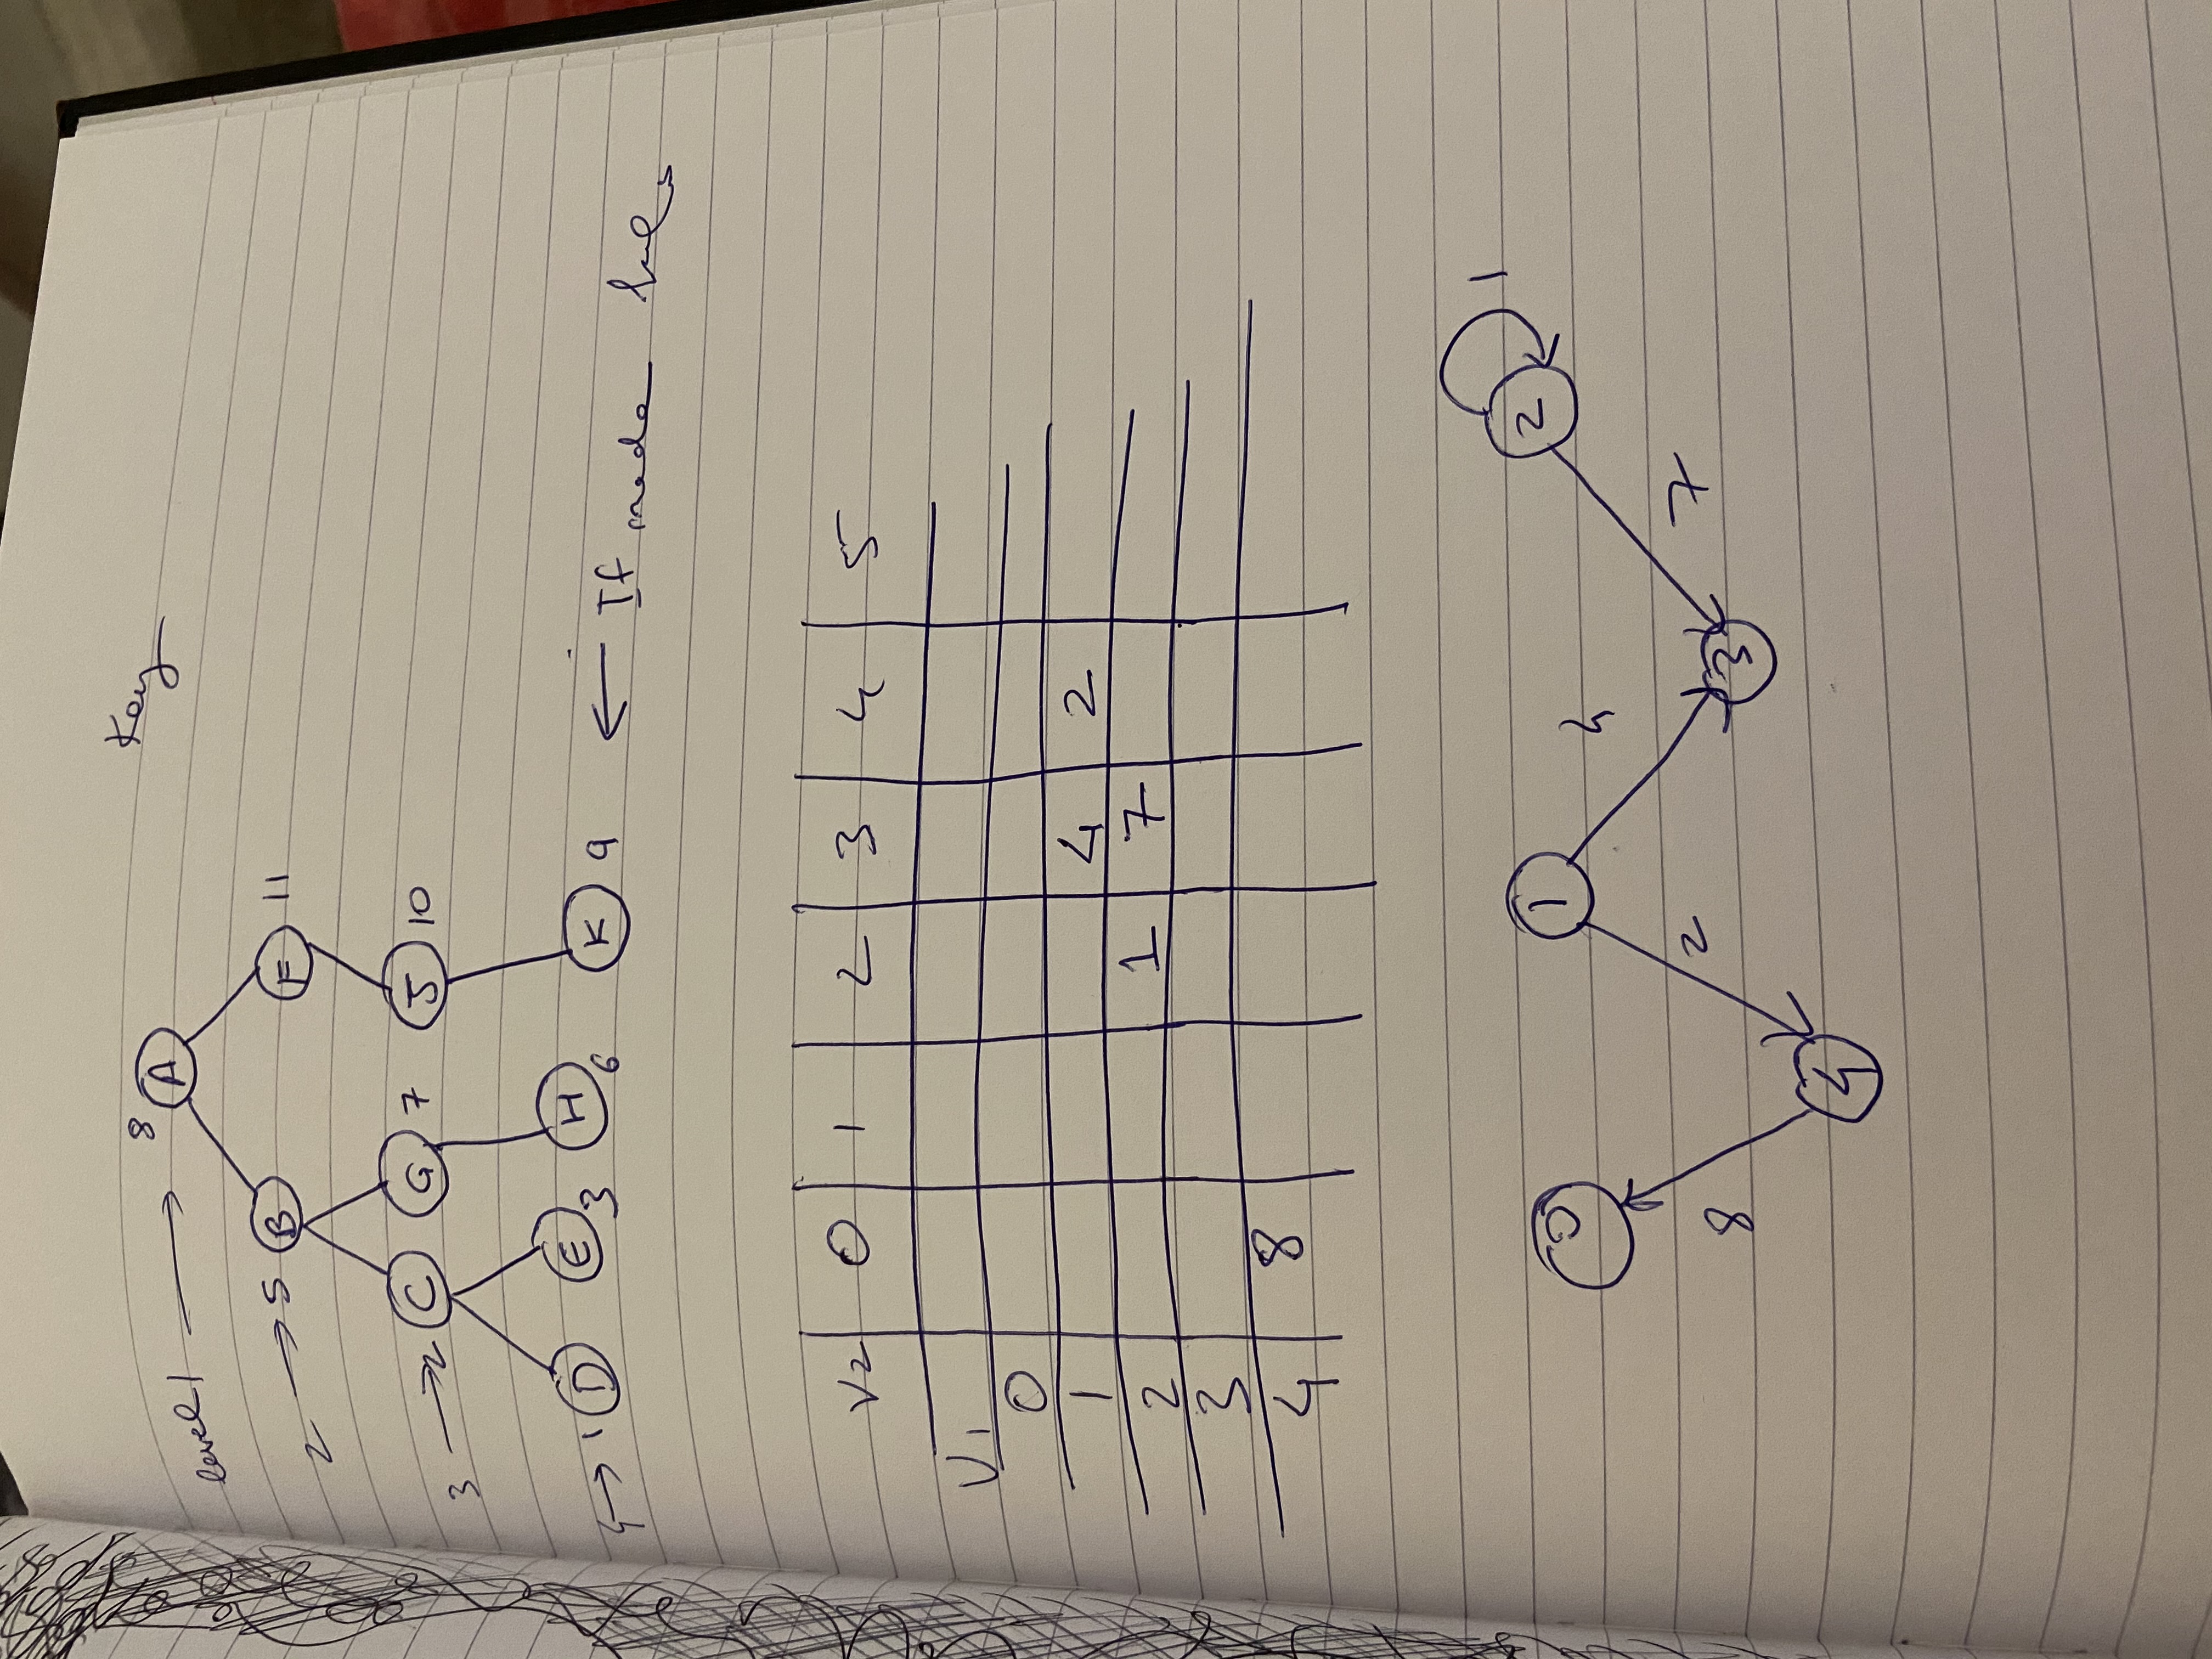 Key
8 A
level 1
2 5 B F 11
3 2 C G 7 J 10
4 1 D E 3 H 6 K 9 If made
V2 0 1 2 3 4 5
V1
0
1 4 2
2 1 7
3
4 8
1
0 1 2
4
8 2 7
3
4